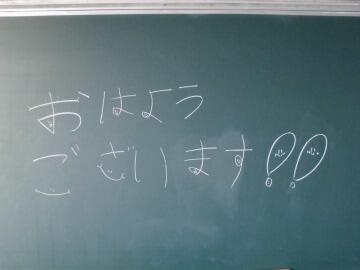 おはよう
ございます!!